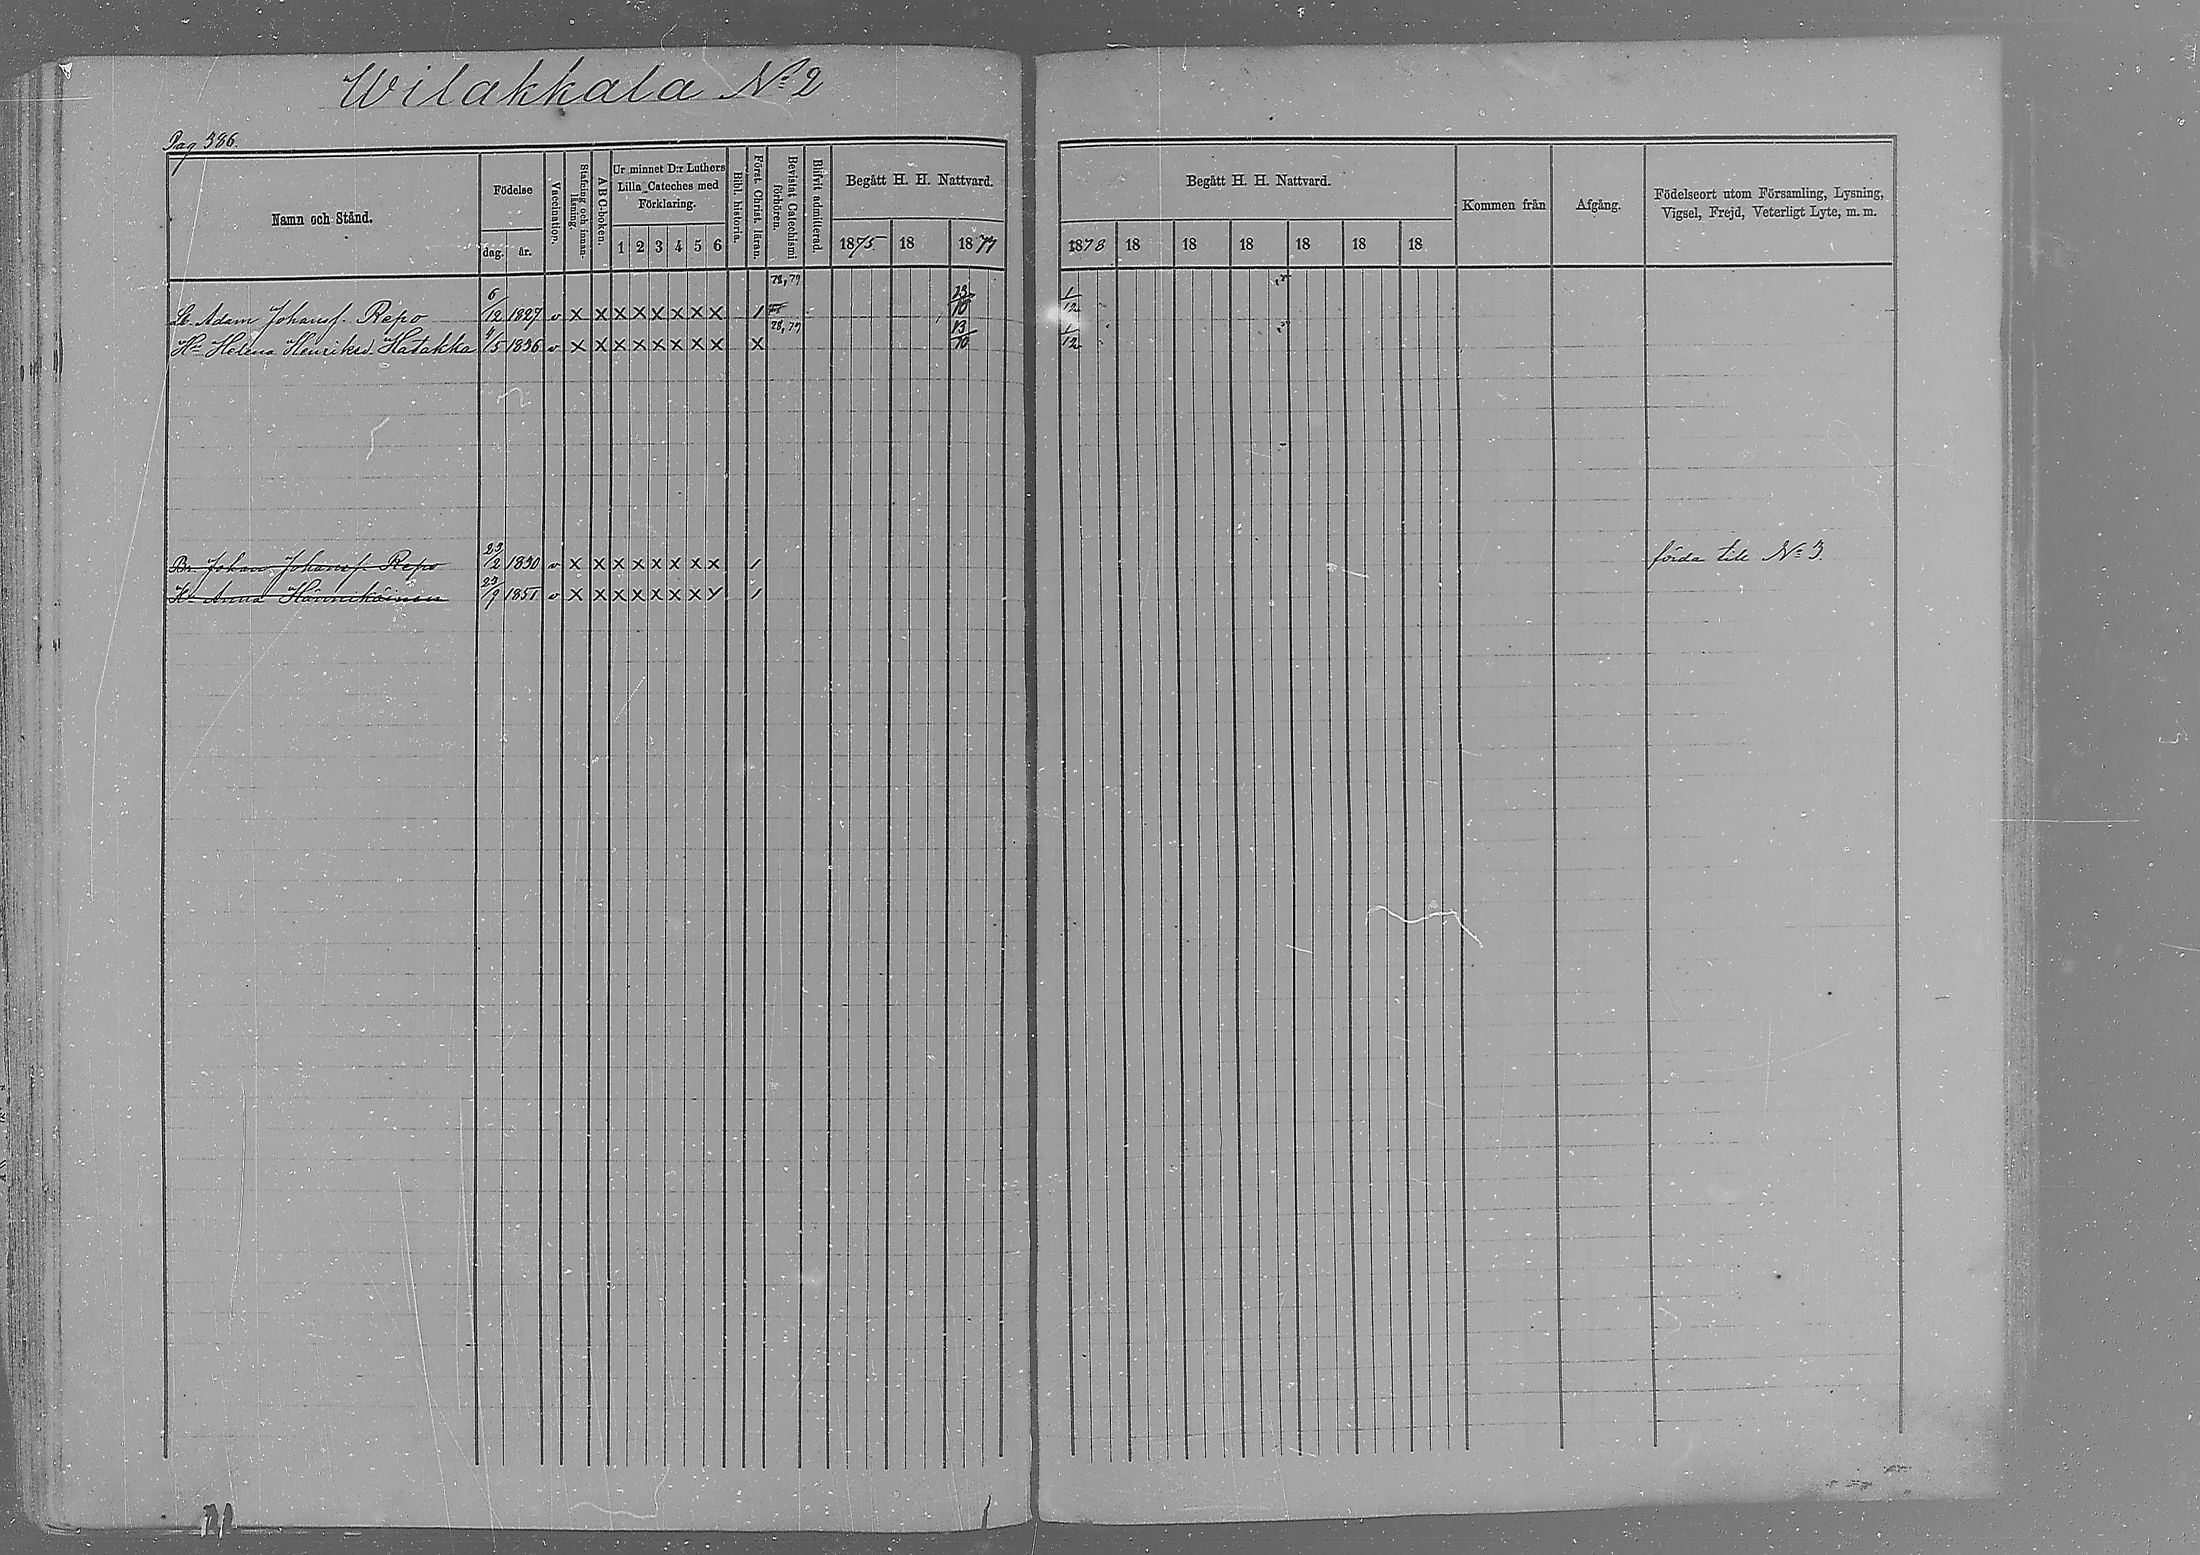 Wilakkala N:o 2
Pag 386.
Namn och Stånd.
Födelse
dag. år.
Vaccination.
Stafning och innanläsning.
A B C-boken.
Ur minnet D:r Luthers Lilla Cateches med Förklaring.
1 2 3 4 5 6
Bibl. historia.
Först. Christ. läran.
Bevistat Catechismi förhören.
Blifvit admitterad.
Begått H. H. Nattvard.
1875 18 1877
Begått H. H. Nattvard.
1878 18 18 18 18 18 18
Kommen från
Afgång.
Födelseort utom Församling, Lysning,
Vigsel, Frejd, Veterligt Lyte, m. m.
Adam Johansf. Repo 6/12 1827 v x x x x x x x x 1 78, 79 23/10 1/12
H:u Helena Henriksd. Hatakka 4/5 1836 v x x x x x x x x x 78, 79 13/10 1/12
Br. Johan Johansf. Repo 23/2 1830 v x x x x x x x x 1 förda till N:o 3
H:u Anna Hännikäinen 23/9 1851 v x x x x x x x 1